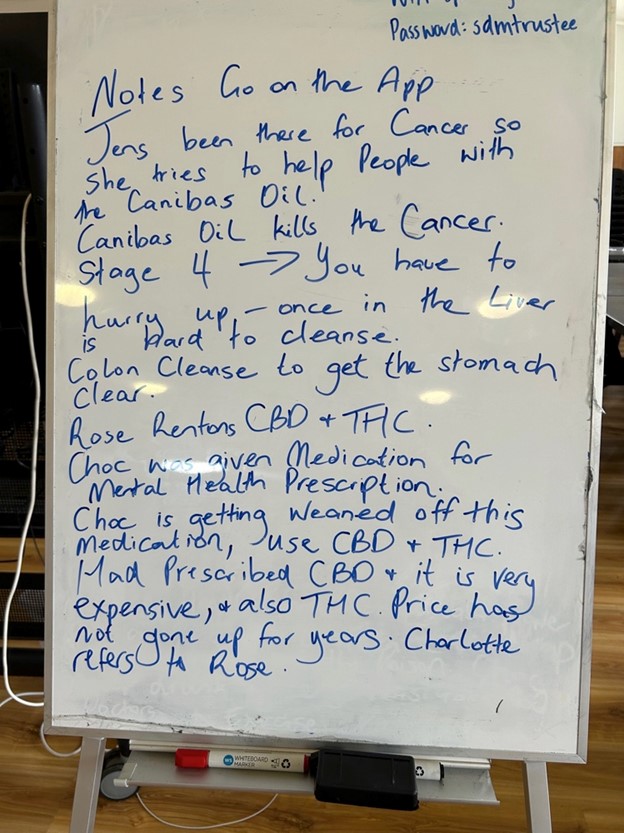 Password: sdmtrustee
Notes Go on the App
Jens been there for Cancer so
she tries to help People with
the Canibas Oil.
Canibas Oil kills the Cancer.
Stage 4 → You have to
hurry up, - once in the Liver
is hard to cleanse.
Colon Cleanse to get the stomach
clear.
Rose Rentons CBD + THC.
Choc was given Medication for
Mental Health Prescription.
Choc is getting weaned off this
medication, use CBD + THC.
Had Prescribed CBD + it is very
expensive, + also THC. Price has
not gone up for years. Charlotte
refers to Rose.
WHITEBOARD
MARKER